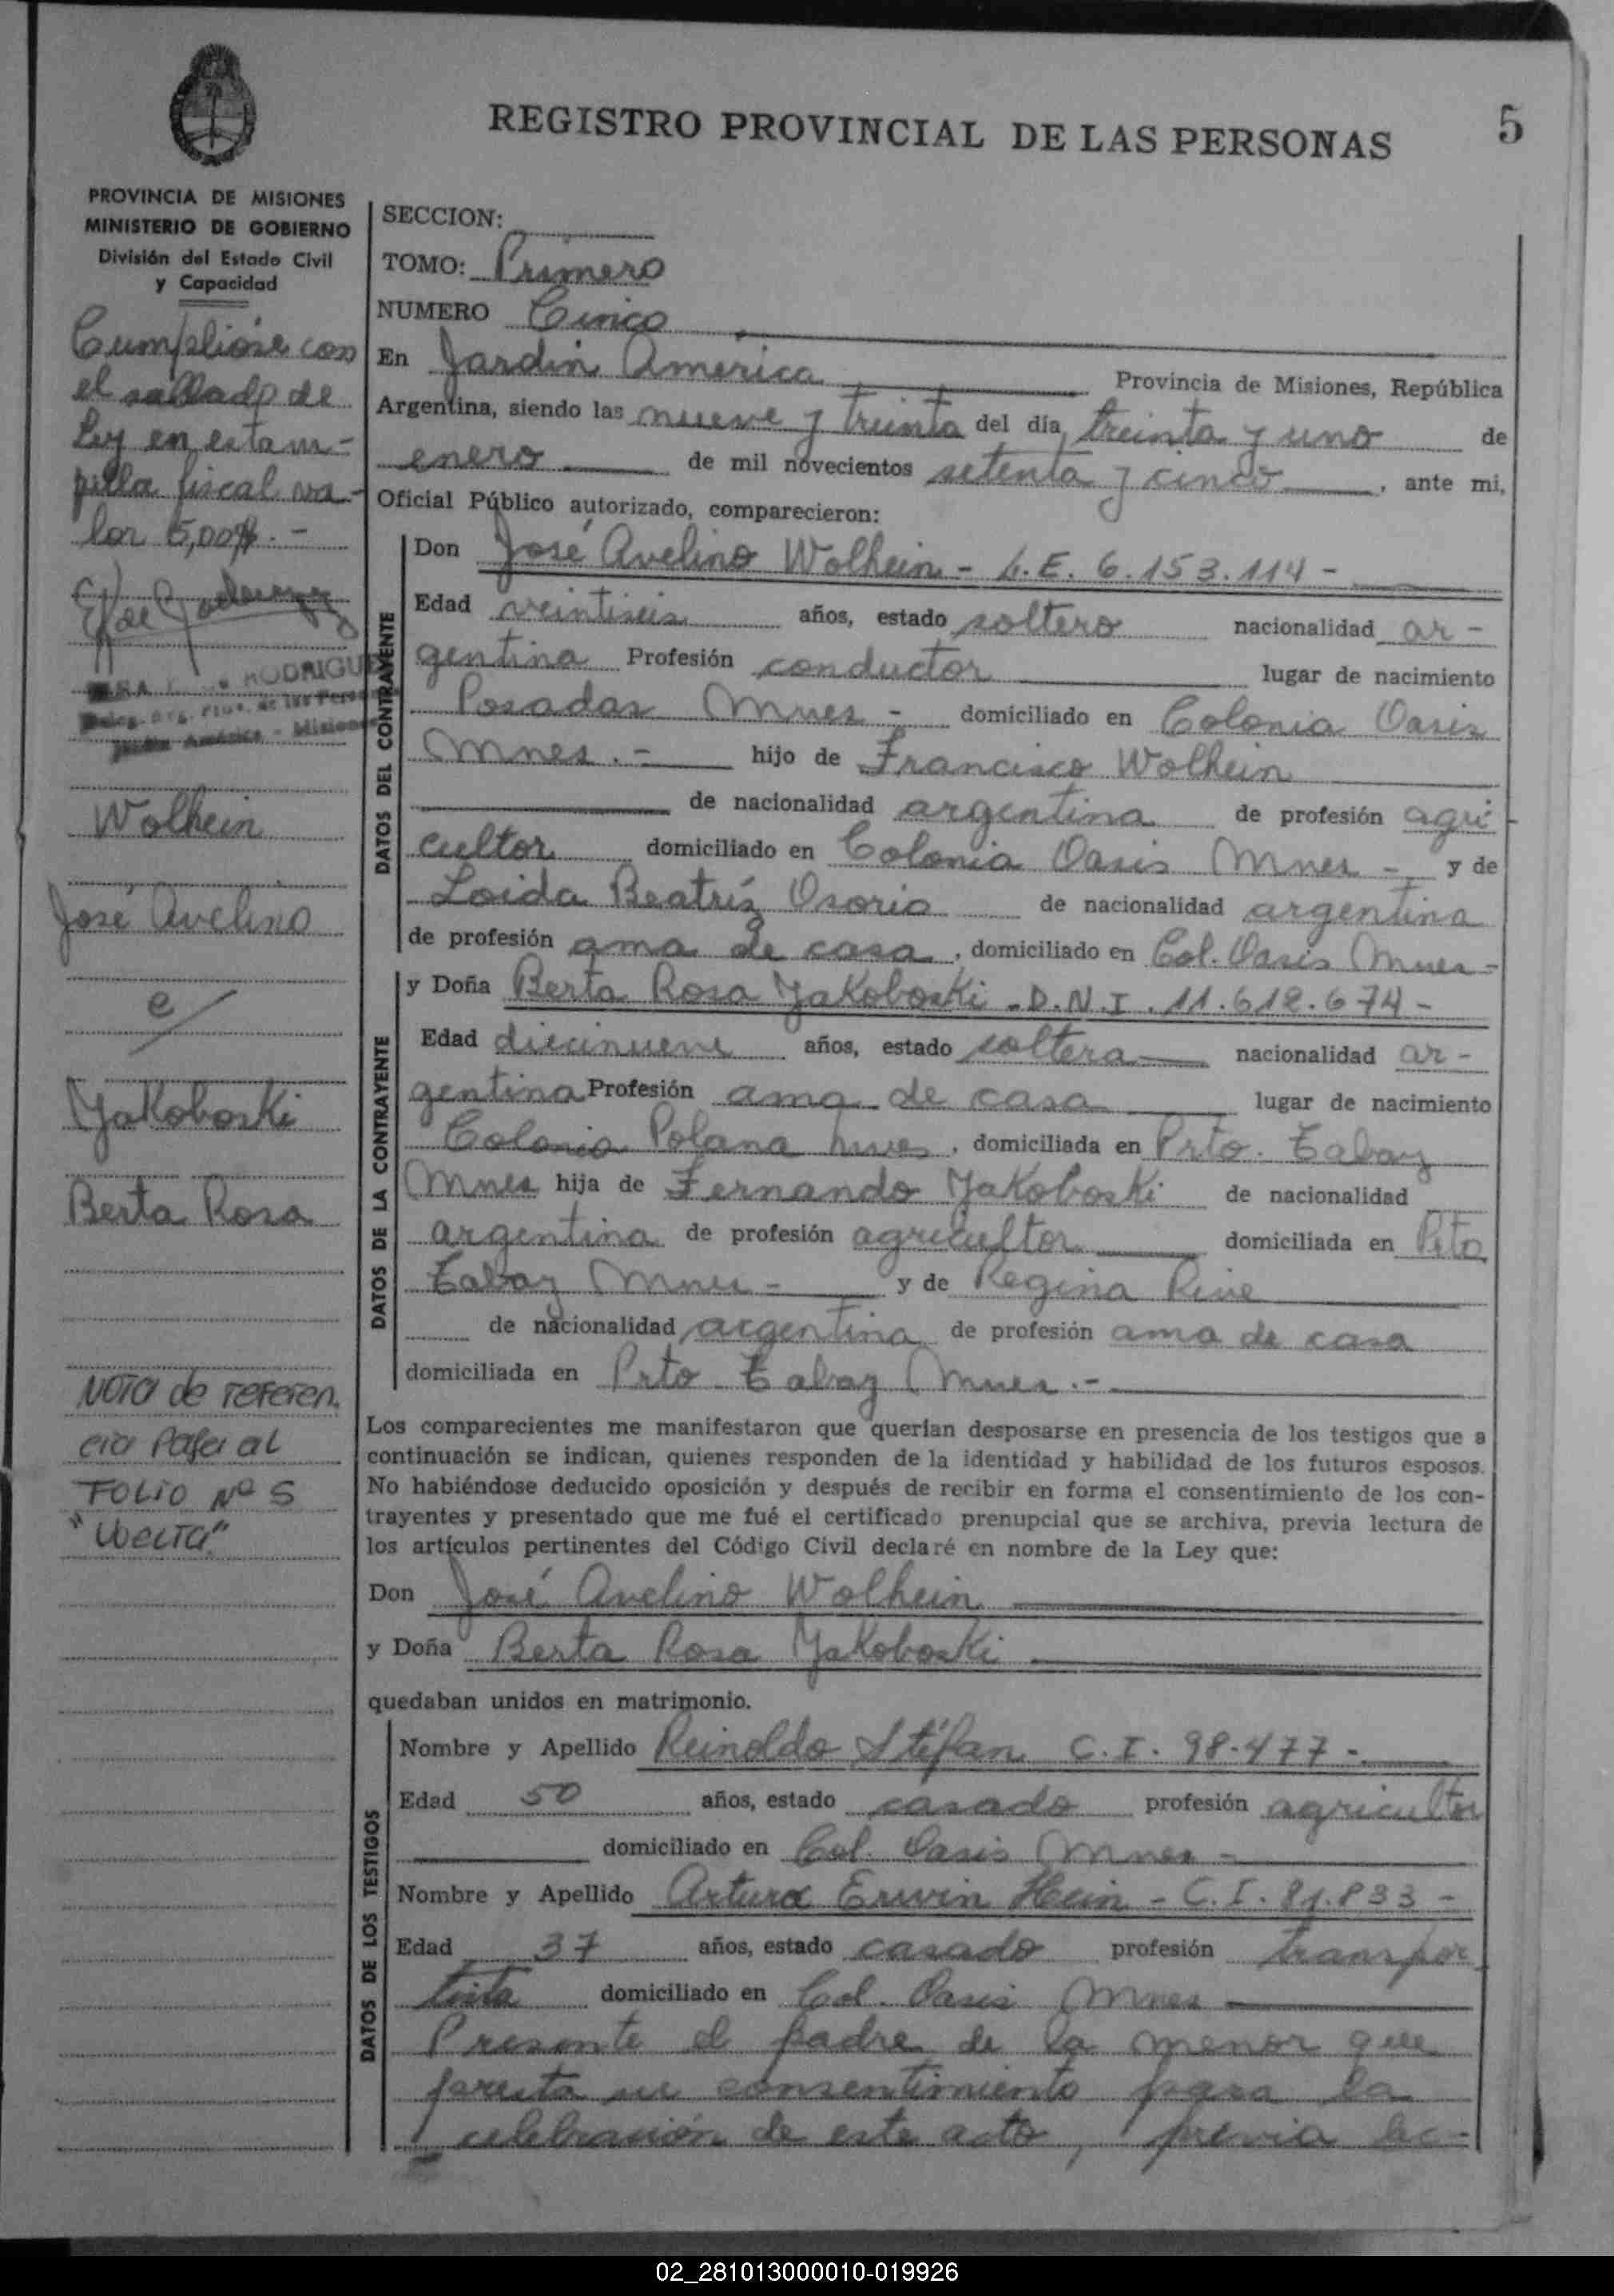 REGISTRO PROVINCIAL DE LAS PERSONAS
5
PROVINCIA DE MISIONES
MINISTERIO DE GOBIERNO
División del Estado Civil
y Capacidad
Cumplióse con
el sellado de
Ley en estam-
pilla fiscal va-
lor 5,00$.-
RODRIGU
Jardín América - Misiones
Wolhein
José Avelino
c/
Yakoboski
Berta Rosa
Nota de referen.
cia Pasa al
FOLIO Nº 5
"Vuelta"
SECCION:
TOMO: Primero
NUMERO Cinco
En Jardin America Provincia de Misiones, República
Argentina, siendo las nueve y treinta del día, treinta y uno de
enero de mil novecientos setenta y cinco, ante mi,
Oficial Público autorizado, comparecieron:
DATOS DEL CONTRAYENTE
Don José Avelino Wolhein - L.E. 6.153.114 -
Edad veintiseis años, estado soltero nacionalidad ar-
gentina Profesión conductor lugar de nacimiento
Posadas Mnes - domiciliado en Colonia Oasis
Mnes.- hijo de Francisco Wolhein
de nacionalidad argentina de profesión agri
cultor domiciliado en Colonia Oasis Mnes - y de
Loida Beatríz Osorio de nacionalidad argentina
de profesión ama de casa, domiciliado en Col. Oasis Mnes -
DATOS DE LA CONTRAYENTE
y Doña Berta Rosa Yakoboski - D.N.I. 11.612.674 -
Edad diecinueve años, estado soltera nacionalidad ar-
gentina Profesión ama de casa lugar de nacimiento
Colonia Polana Mnes, domiciliada en Prto. Tabay
Mnes hija de Fernando Yakoboski de nacionalidad
argentina de profesión agricultor domiciliada en Pto
Tabay Mnes - y de Regina Rive
de nacionalidad argentina de profesión ama de casa
domiciliada en Prto Tabay Mnes.-
Los comparecientes me manifestaron que querían desposarse en presencia de los testigos que a
continuación se indican, quienes responden de la identidad y habilidad de los futuros esposos.
No habiéndose deducido oposición y después de recibir en forma el consentimiento de los con-
trayentes y presentado que me fué el certificado prenupcial que se archiva, previa lectura de
los artículos pertinentes del Código Civil declaré en nombre de la Ley que:
Don José Avelino Wolhein
y Doña Berta Rosa Yakoboski
quedaban unidos en matrimonio.
DATOS DE LOS TESTIGOS
Nombre y Apellido Reinoldo Stéfan C.I. 98.477 -
Edad 50 años, estado casado profesión agricultor
domiciliado en Col. Oasis Mnes -
Nombre y Apellido Arturo Erwin Hein - C.I. 81.833 -
Edad 37 años, estado casado profesión transpor
tista domiciliado en Col. Oasis Mnes
Presente el padre de la menor que
presta su consentimiento para la
celebración de este acto, previa lec-
02_281013000010-019926